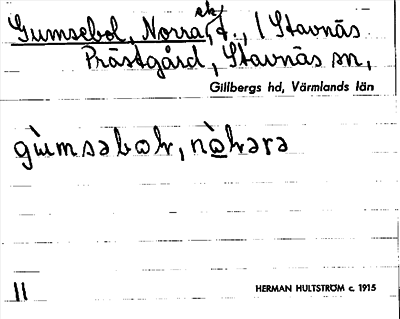 Gumsebol, Norra, sk/ t., / Stavnäs
Prästgård, Stavnäs sn,
Gillbergs hd, Värmlands län
gùmsəbωɫ, nὼɫərə
11
HERMAN HULTSTRÖM c. 1915